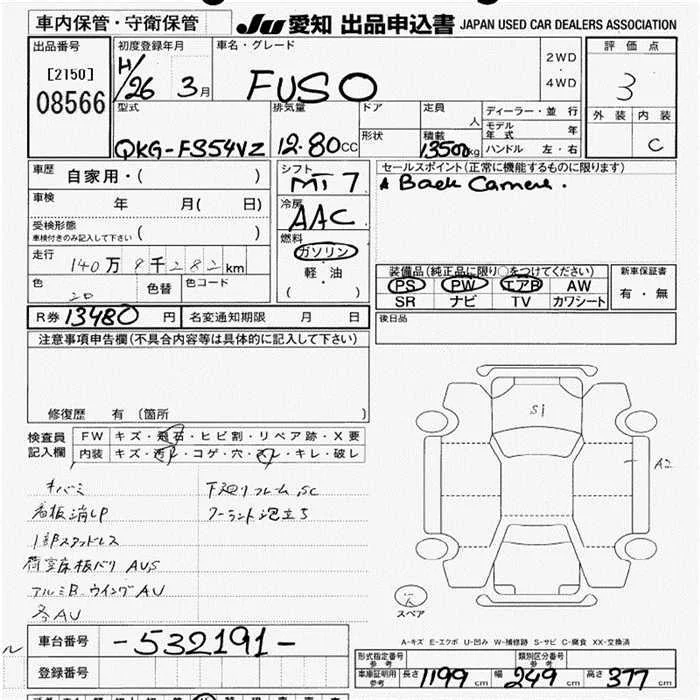 車内保管・守衛保管 JU 愛知 出品申込書 JAPAN USED CAR DEALERS ASSOCIATION
出品番号 初度登録年月 車名・グレード 2WD・4WD 評価点
[2150] H/26 3月 FUSO 3
08566 外装 内装
型式 排気量 ドア 定員 人 ディーラー・並行
QKG-FS54VZ 12.80CC 形状 積載 13500kg モデル年式 年 C
ハンドル 左・右
車歴 自家用・( ) シフト MT 7 セールスポイント(正常に機能するものに限ります)
車検 年 月( 日) 冷房 AAC Back Camera.
受検形態 車検付きのみ記入して下さい ( ) 燃料 ガソリン
走行 140万9千282km 軽・油 装備品(純正品に限り〇をつけてください) 新車保証書
色 20 色替 色コード ( ) PS PW エアB AW 有・無
SR ナビ TV カワシート
R券 13480円 名変通知期限 月 日 後日品
注意事項申告欄(不具合内容等は具体的に記入して下さい)
修復歴 有(箇所 )
検査員 FW キズ・飛石・ヒビ割・リペア跡・X要
記入欄 内装 キズ・汚れ・コゲ・穴・スレ・キレ・破レ
Si
A2
キバミ 下廻りフレームSC
看板消しP クーラント泡立ち
1部スタッドレス
荷室床板バリ AUS
アルミB ウイングAU
各AU
スペア
ル
車台番号 -532191-
A-キズ E-エクボ U-凹み W-補修跡 S-サビ C-腐食 XX-交換済
登録番号 形式指定番号 参考 類別区分番号 参考
車庫証明用 参考 長さ 1199cm 幅 249cm 高さ 377cm